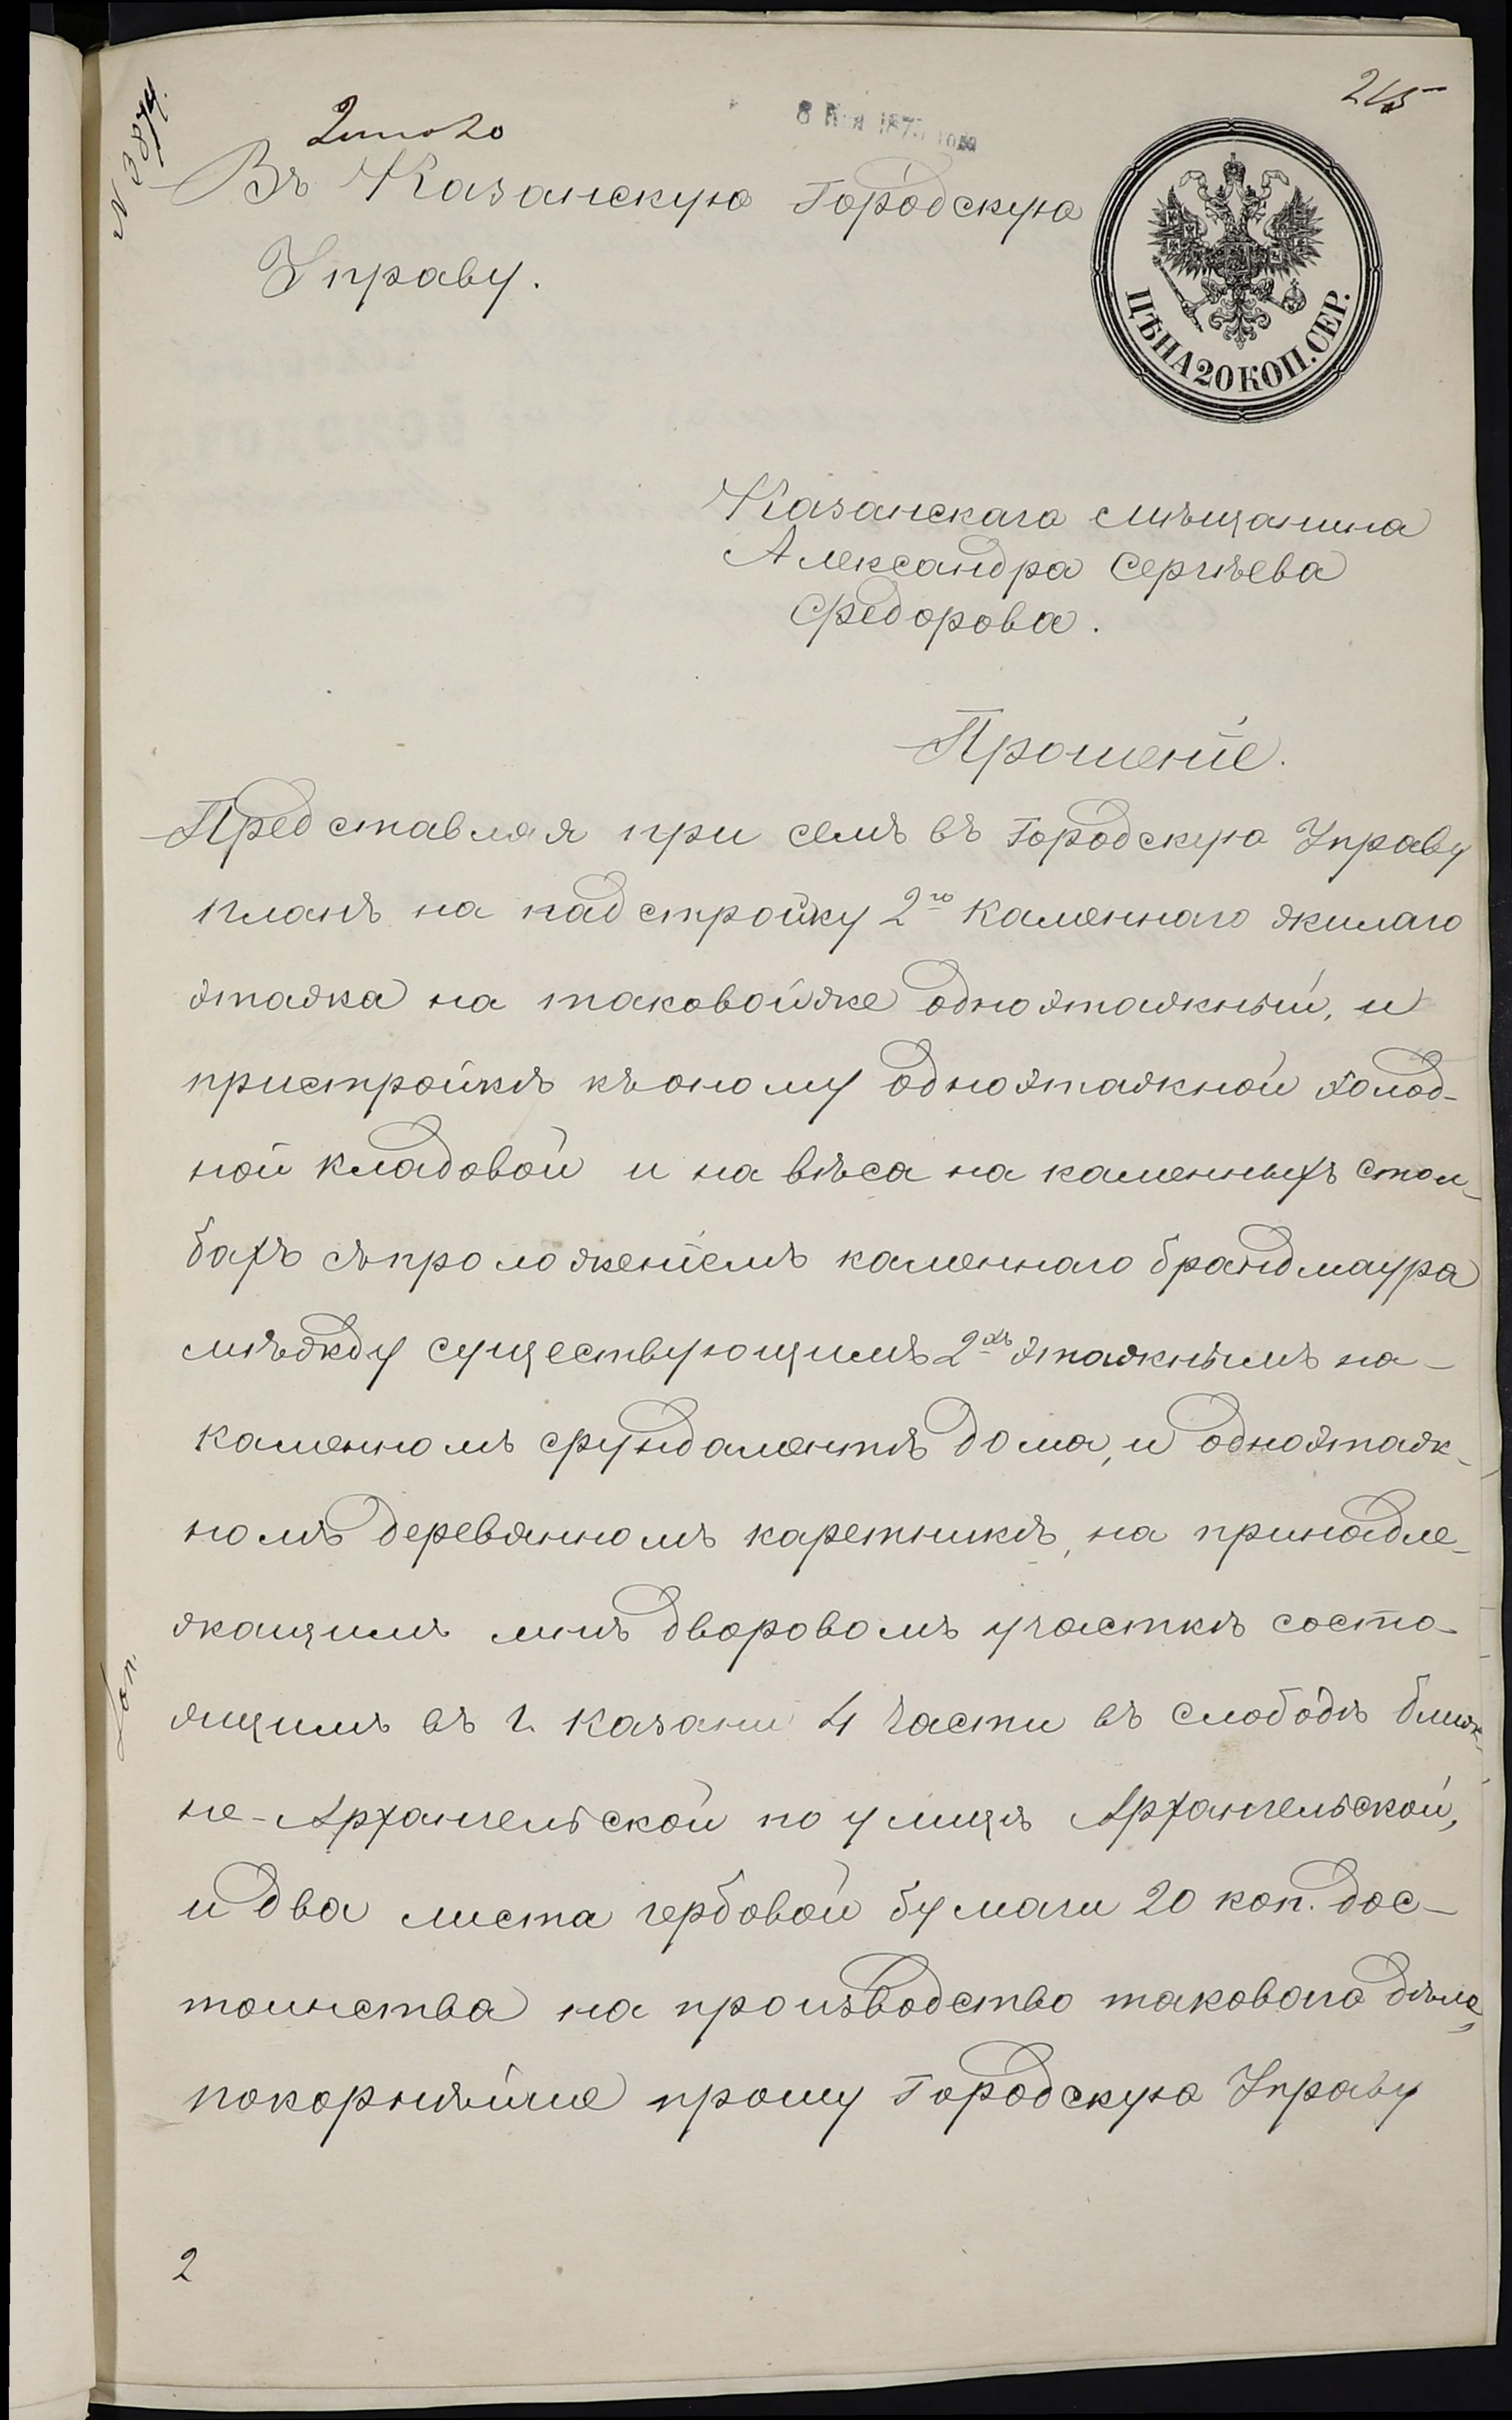 215
№ 3874.
8 Ноя 1875 года
2 листо
Въ Казанскую Городскую
Управу.
ЦѢНА 20 КОП. СЕР.
Казанскаго мѣщанина
Александра Сергѣева
Федорова.
Прошеніе.
Представляя при семъ въ Городскую Управу
планъ на надстройку 2го каменнаго жилаго
этажа на таковойже одноэтажный, и
пристройкѣ къ оному одноэтажной холод-
ной кладовой и на вѣса на каменныхъ стол-
бахъ съ проложеніемъ каменнаго брандмаура
мѣжду существующимъ 2хъ этажнымъ на-
каменномъ фундаментѣ дома, и одноэтаж-
номъ деревянномъ каретникѣ, на принадле-
жащимъ мнѣ дворовомъ участкѣ состо-
ящимъ въ г. Казани 4 части въ слободѣ ближ-
не-Архангельской по улицѣ Архангельской,
и два листа гербовой бумаги 20 коп. дос-
тоинства на производство таковаго дѣла,
покорнѣйше прошу Городскую Управу
2